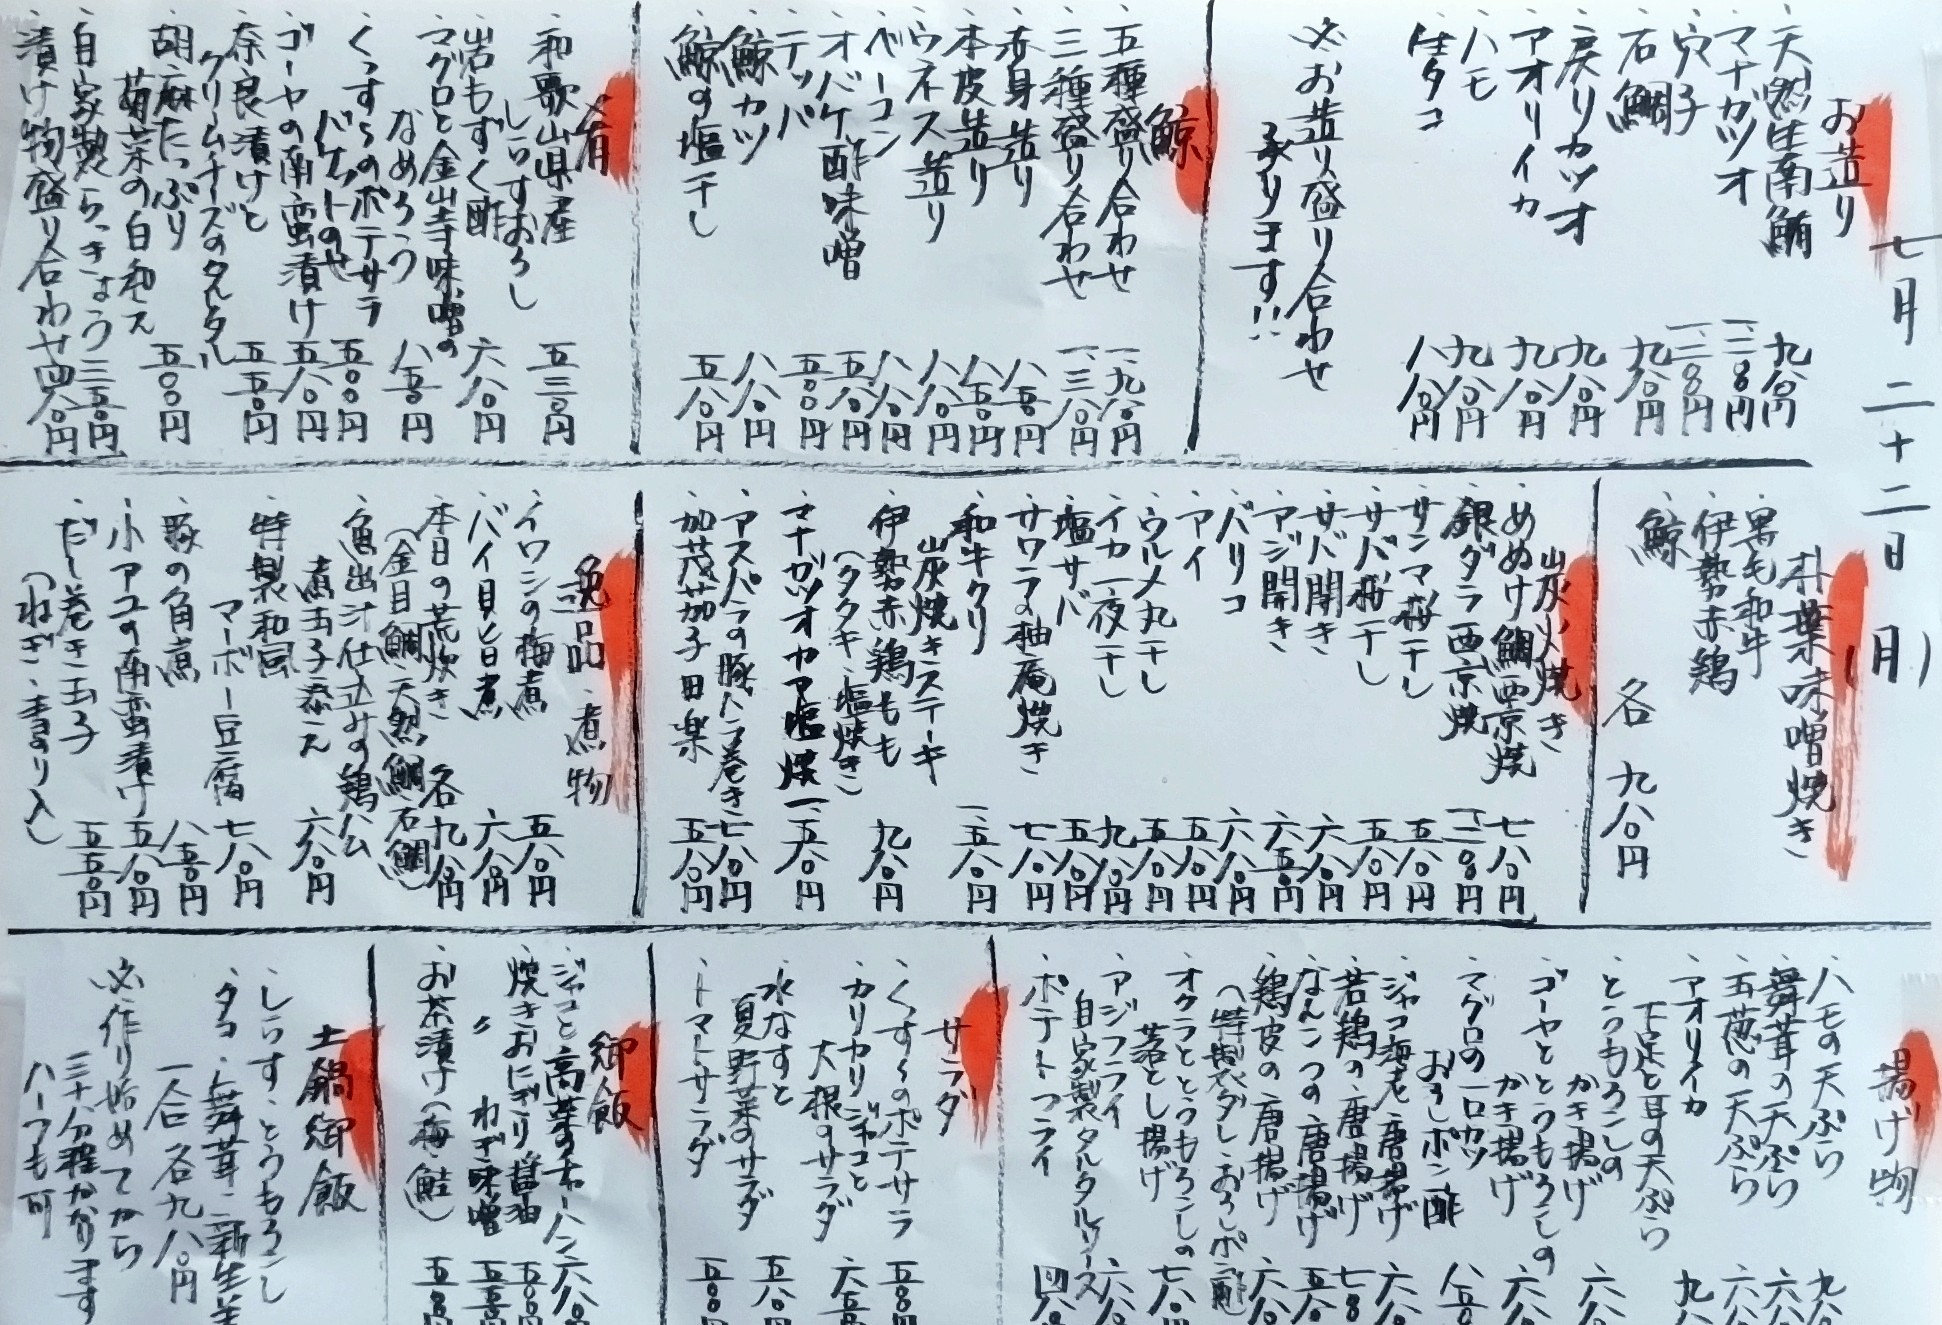 七月二十二日(月)
お造り
・天然生南鮪 九八〇円
・マナガツオ 一、二八〇円
・穴子 一、二八〇円
・石鯛 九八〇円
・戻りカツオ 九八〇円
・アオリイカ 九八〇円
・ハモ 九八〇円
・生タコ 八八〇円
※お造り盛り合わせ
承ります!!
鯨
・五種盛り合わせ 一、九八〇円
・三種盛り合わせ 一、三八〇円
・赤身造り 八五〇円
・本皮造り 八五〇円
・ウネス造り 八八〇円
・ベーコン 八八〇円
・オバケ酢味噌 五八〇円
・テッパ 五〇〇円
・鯨カツ 八八〇円
・鯨の塩干し 五八〇円
肴
・和歌山県産
しらすおろし 五三〇円
・岩もずく酢 六八〇円
・マグロと金山寺味噌の
なめろう 八五〇円
・くっすらのポテサラ
バケットのせ 五〇〇円
・ゴーヤの南蛮漬け 五八〇円
・奈良漬けと
クリームチーズのタルタル 五五〇円
・胡麻たっぷり
菊菜の白和え 五〇〇円
・自家製らっきょう 三五〇円
・漬け物盛り合わせ 四八〇円
朴葉味噌焼き
・黒毛和牛
・伊勢赤鶏
・鯨
各 九八〇円
炭火焼き
・めぬけ鯛西京焼 七八〇円
・銀ダラ西京焼 一、二八〇円
・サンマ梅干し 五八〇円
・サバ梅干し 五八〇円
・サバ開き 六八〇円
・アジ開き 六五〇円
・バリコ 六八〇円
・アイ 五八〇円
・ウルメ丸干し 五八〇円
・イカ一夜干し 九八〇円
・塩サバ 五八〇円
・サワラの柚庵焼き 七八〇円
・和牛クリ
炭焼きステーキ 一、五八〇円
・伊勢赤鶏もも
(タタキ・塩焼き) 九八〇円
・マナガツオカマ塩焼 一、五八〇円
・アスパラの豚トラ巻き 七八〇円
・加茂茄子田楽 五八〇円
逸品・煮物
・イワシの梅煮 五八〇円
・バイ貝旨煮 六八〇円
・本日の荒炊き 各九八〇円
(金目鯛・天然鯛・石鯛)
・魚出汁仕立みの鶏ハム
煮玉子添え 六八〇円
・特製和風
マーボー豆腐 七八〇円
・豚の角煮 八五〇円
・小アユの南蛮漬け 五八〇円
・だし巻き玉子 五五〇円
(ねぎ・青のり入)
揚げ物
・ハモの天ぷら 九八
・舞茸の天ぷら 六八〇
・玉葱の天ぷら 六八
・アオリイカ
下足と耳の天ぷら 九八
・とうもろこしの
かき揚げ 六八
・ゴーヤととうもろこしの
かき揚げ 六八〇
・マグロの一口カツ
おろしポン酢 八五〇
・ジャコ海老唐揚げ 六八〇
・若鶏の唐揚げ 七八〇
・なんこつの唐揚げ 五八〇
・鶏皮の唐揚げ 六八〇
(特製ダし・おろしポン酢)
・オクラととうもろこしの
落とし揚げ 七八〇
・アジフライ
自家製タルタルソース 六八〇
・ポテトフライ 四八〇
サラダ
・くっすらのポテサラ 五〇〇円
・カリカリジャコと
大根のサラダ 六五〇
・水なすと
夏野菜のサラダ 五八〇
・トマトサラダ 五〇〇円
御飯
・ジャコと高菜のチャーハン 六八〇円
・焼きおにぎり醤油 五〇〇円
〃 ねぎ味噌 五五〇円
・お茶漬け(梅・鮭) 五五〇円
土鍋御飯
・しらす・とうもろこし
・タコ・舞茸・新生姜
一合 各九八〇円
※作り始めてから
三十八分程かかります
ハーフも可